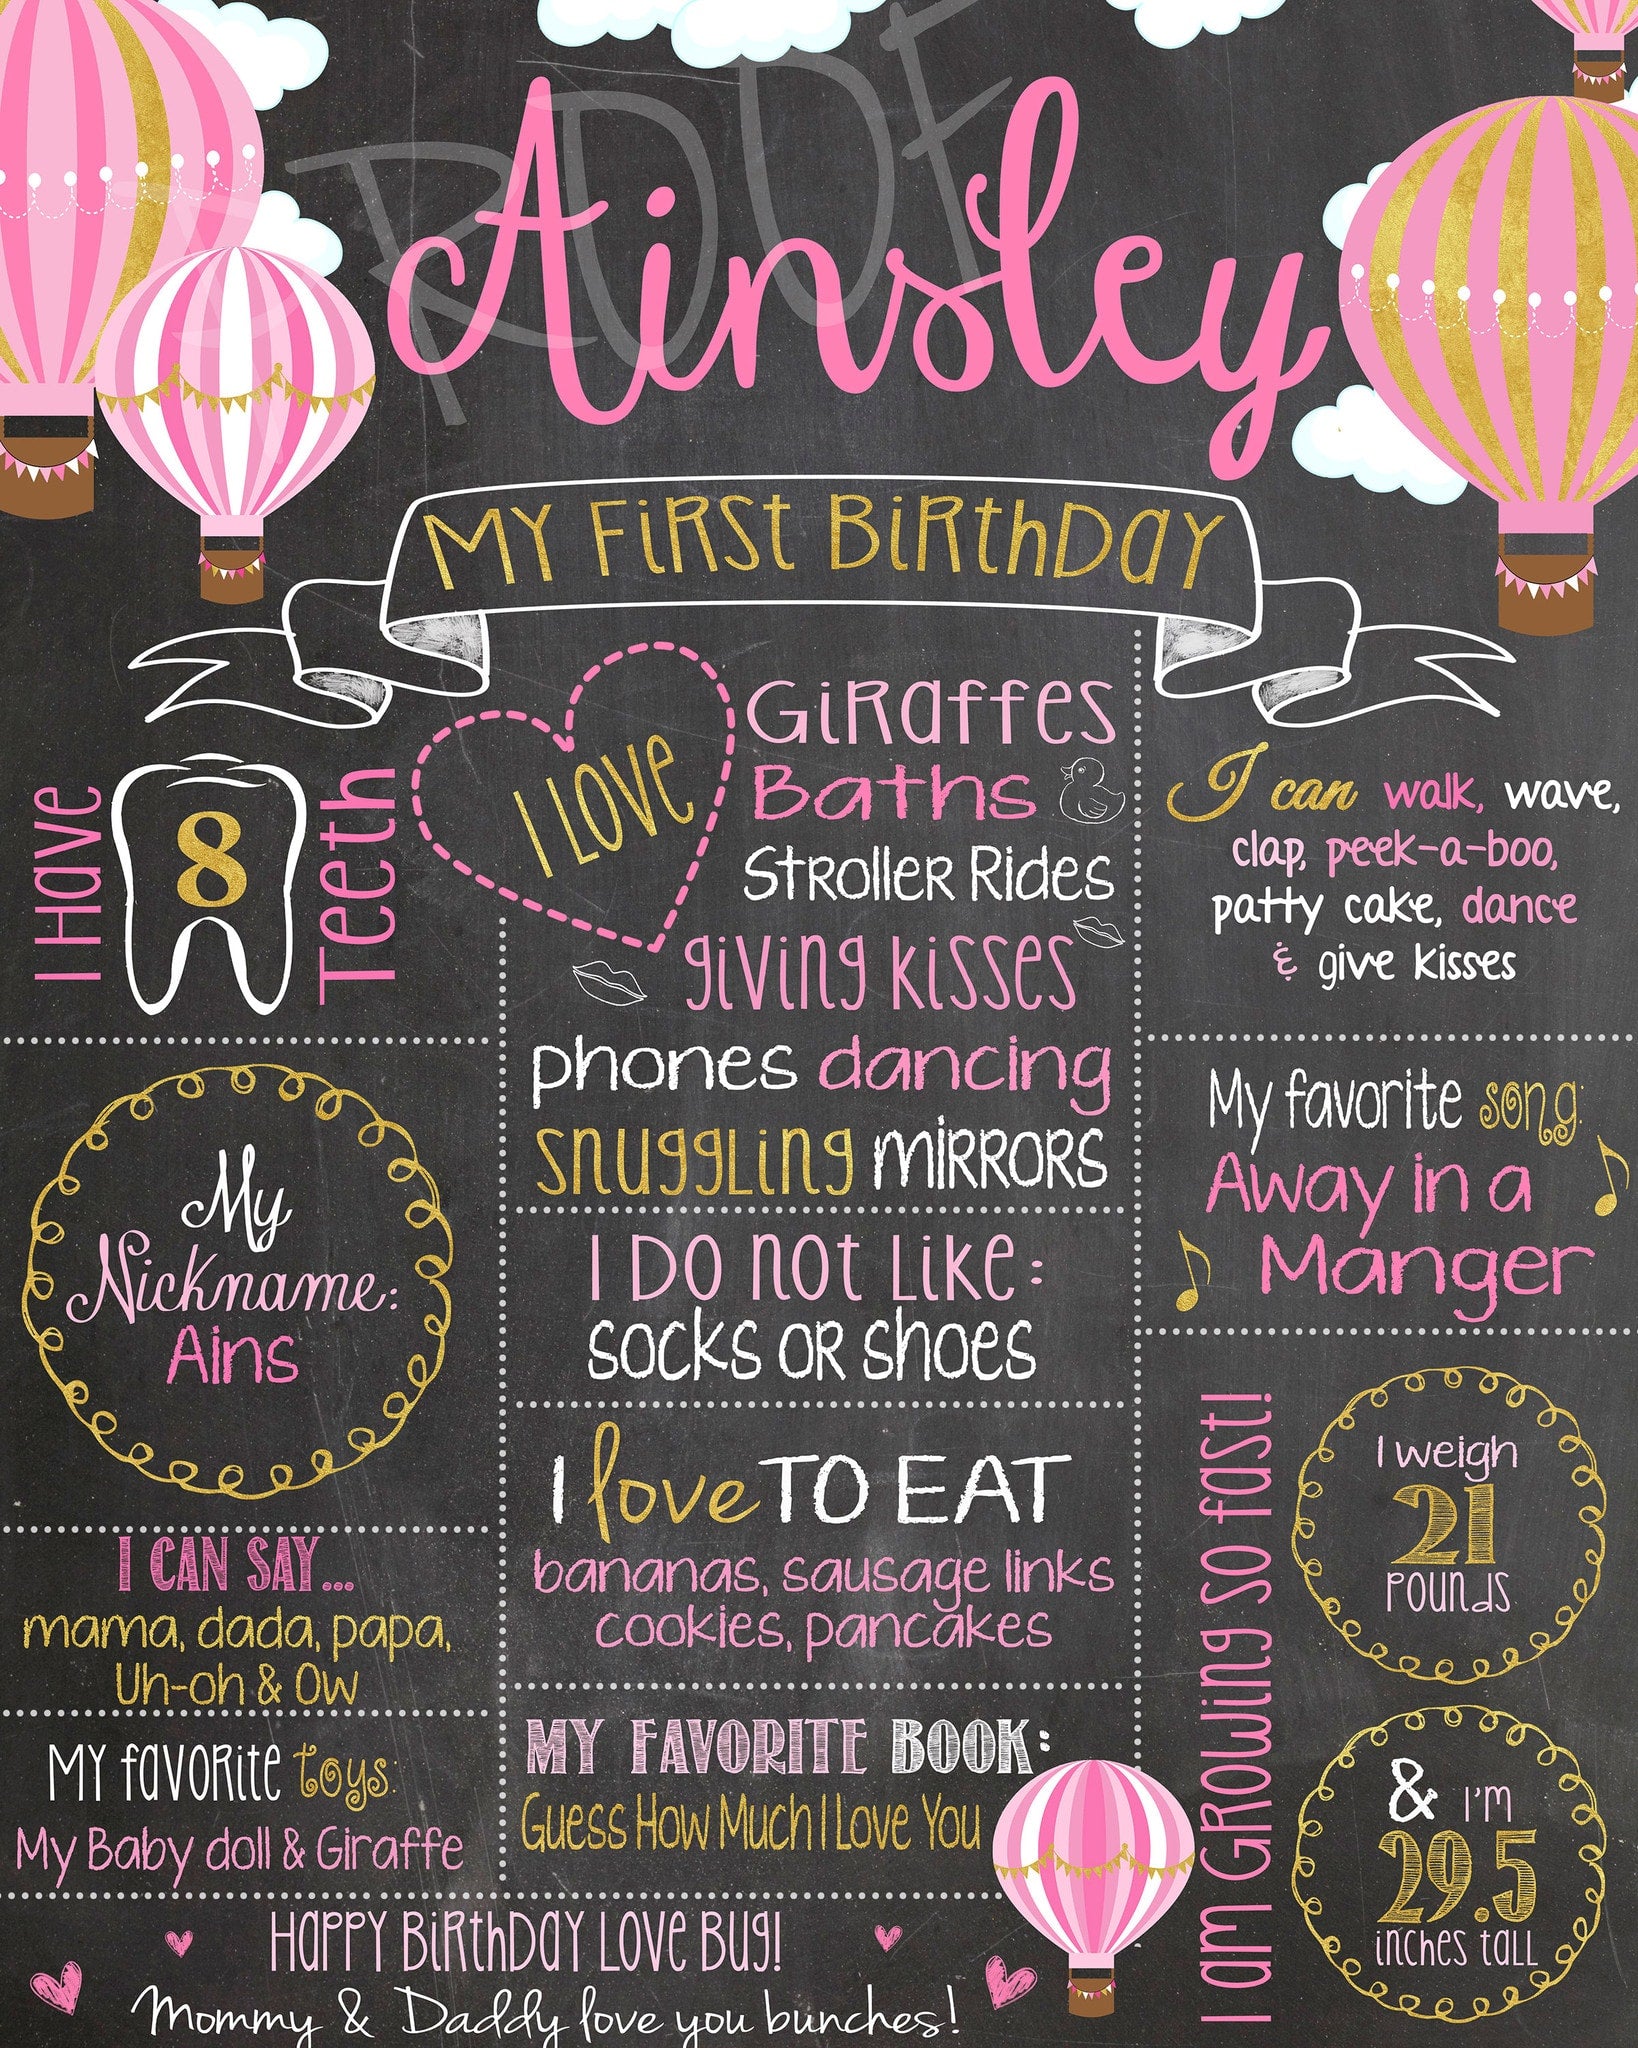 PROOF
Ainsley
MY FIRST BIRTHDAY
I Have
8
Teeth
I LOVE
GIRAFFES
Baths
Stroller Rides
giving kisses
phones dancing
snuggling mirrors
I can walk, wave,
clap, peek-a-boo,
patty cake, dance
& give kisses
My
Nickname:
Ains
My favorite song:
Away in a
Manger
I DO not LIKE:
socks or shoes
I love TO EAT
bananas, sausage links
cookies, pancakes
I CAN SAY...
mama, dada, papa,
Uh-oh & Ow
MY favorite toys:
My Baby doll & Giraffe
MY FAVORITE BOOK:
Guess How Much I Love You
I am Growing so fast!
I weigh
21
pounds
& I'm
29.5
inches tall
Happy Birthday Love Bug!
Mommy & Daddy love you bunches!